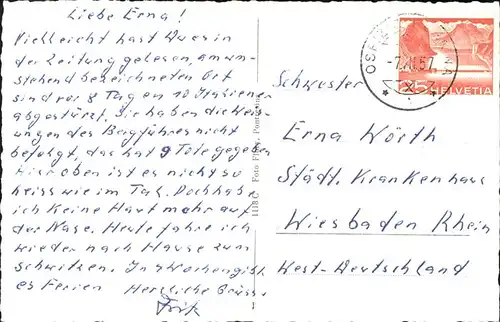 Liebe Erna!
Vielleicht hast Du es in
der Zeitung gelesen, am um-
stehend bezeichneten Ort
sind vor 8 Tagen 10 Italiener
abgestürzt, Sie haben die Weis-
ungen des Bergführers nicht
befolgt, das hat 9 Tote gegeben
Hier oben ist es nicht so
heiss wie im Tal. Doch habe
ich keine Haut mehr auf
der Nase. Heute fahre ich
wieder nach Hause zum
schwitzen. In Wochen gibt
es Ferien Herzliche Grüsse
Fritz
1118 C Foto
HELVETIA
Schwester
Erna Wörth
Städt. Krankenhaus
Wiesbaden Rhein
West-Deutschland